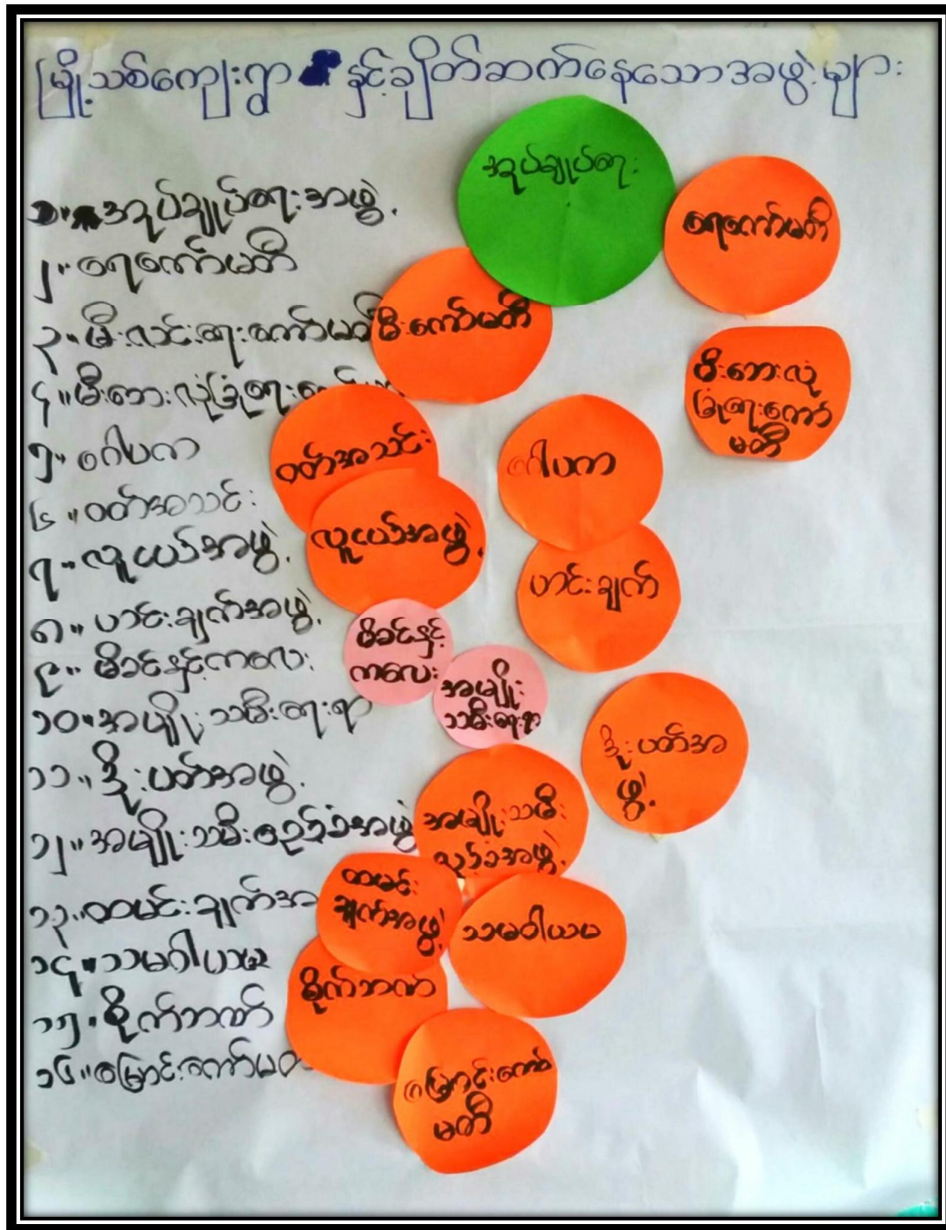 မြို့သစ်ကျေးရွာ နှင့်ချိတ်ဆက်နေသောအဖွဲ့များ
၁။ အုပ်ချုပ်ရေးအဖွဲ့
၂။ ရေကော်မတီ
၃။ မီးလင်းရေးကော်မတီ
၄။ မီးဘေးလုံခြုံရေး
၅။ ဂေါပက
၆။ ဝတ်အသင်း
၇။ လူငယ်အဖွဲ့
၈။ ဟင်းချက်အဖွဲ့
၉။ မိခင်နှင့်ကလေး
၁၀။ အမျိုးသမီးရေးရာ
၁၁။ ဒိုးပတ်အဖွဲ့
၁၂။ အမျိုးသမီး
၁၃။ ထမင်းချက်အ
၁၄။ သမဝါယမ
၁၅။ စိုက်ဘဏ်
၁၆။ မြောင်းကော်မတ
အုပ်ချုပ်ရေး
ရေကော်မတီ
မီးကော်မတီ
မီးဘေးလုံ
ခြုံရေးကော်
မတီ
ဝတ်အသင်း
ဂေါပက
လူငယ်အဖွဲ့
ဟင်းချက်
မိခင်နှင့်
ကလေး
အမျိုး
သမီးရေးရာ
ဒိုးပတ်အ
ဖွဲ့
အမျိုးသမီး
ထမင်း
ချက်အဖွဲ့
သမဝါယမ
စိုက်ဘဏ်
မြောင်းကော်
မတီ